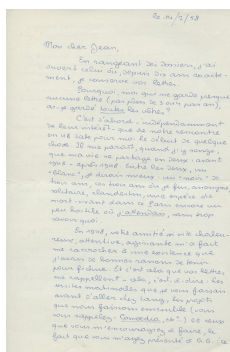 Mon cher Jean,
En rangeant des dossiers, j'ai
ouvert celui où, depuis dix ans exacte-
ment, je conserve vos lettres.
Pourquoi, moi qui ne garde presque
aucune lettre (pas plus de 3 ou 4 par an),
ai-je gardé toutes les vôtres ?
C'est d'abord - indépendamment
de leur intérêt - que de notre rencontre
on ne date pour moi le début de quelque
chose. Il me paraît, quand j'y songe,
que ma vie se partage en deux : avant
1948 - après 1948. Entre les deux, un
"blanc",
dix ans, où je fus, anonyme,
solitaire, clandestin, une espèce de
mort-vivant dans un Paris
peu hostile où j'attendais, sans trop
savoir quoi.
En 1948, votre amitié si vive, chaleu-
reuse, attentive, m'a fait
me raccrocher à une existence que
j'avais de bonnes raisons de tenir
pour finie. Et c'est cela que vos lettres
me rappellent
visites matinales que je vous faisais
avant d'aller chez Lang, les projets
que nous faisions ensemble (vous
vous rappelez : Comoedia, etc.) ce roman
que vous m'encouragiez à faire, le